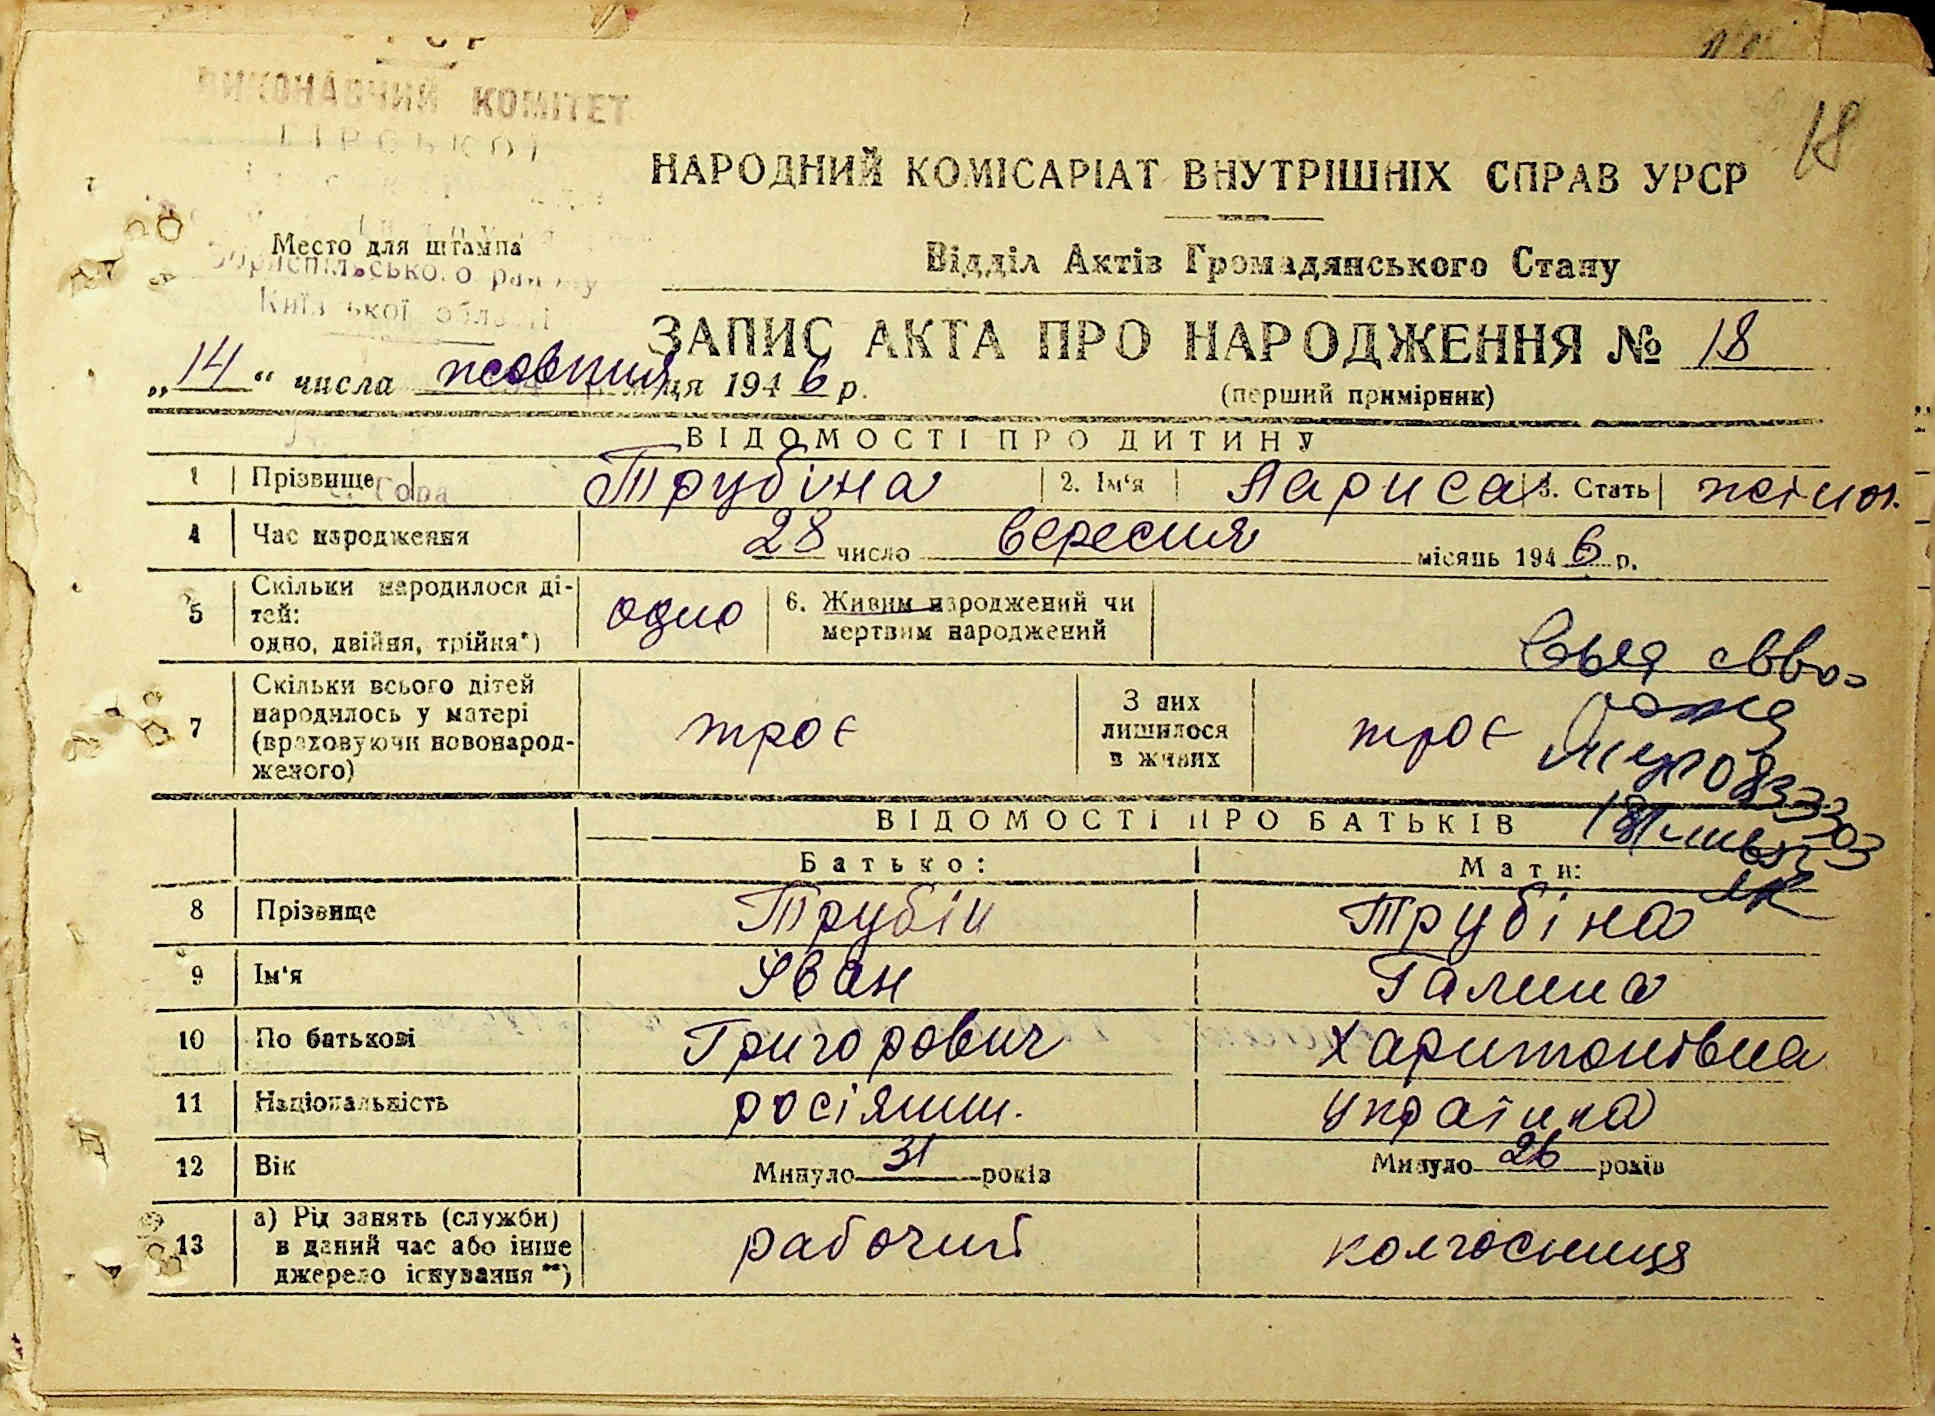 18
ВИКОНАВЧИЙ КОМІТЕТ
НАРОДНИЙ КОМІСАРІАТ ВНУТРІШНІХ СПРАВ УРСР
Место для штампа
Бориспільського району
Київської області
Відділ Актів Громадянського Стану
ЗАПИС АКТА ПРО НАРОДЖЕННЯ № 18
„14“ числа жовтня м-ця 1946 р.
(перший примірник)
ВІДОМОСТІ ПРО ДИТИНУ
с. Гора
1 Прізвище Трубіна 2. Ім‘я Лариса 3. Стать жіноч.
4 Час народження 28 число вересня місяць 1946 р.
5 Скільки народилося ді-
тей:
одно, двійня, трійня*)
одно
6. Живим народжений чи
мертвим народжений
7 Скільки всього дітей
народилось у матері
(враховуючи новонарод-
женого)
троє
З них
лишилося
в живих
троє
ВІДОМОСТІ ПРО БАТЬКІВ
Батько: Мати:
8 Прізвище Трубін Трубіна
9 Ім‘я Іван Галина
10 По батькові Григорович Харитонівна
11 Національність росіянин. українка
12 Вік Минуло 31 років Минуло 26 років
13 а) Рід занять (служби)
в даний час або інше
джерело існування**)
рабочий колгосниця